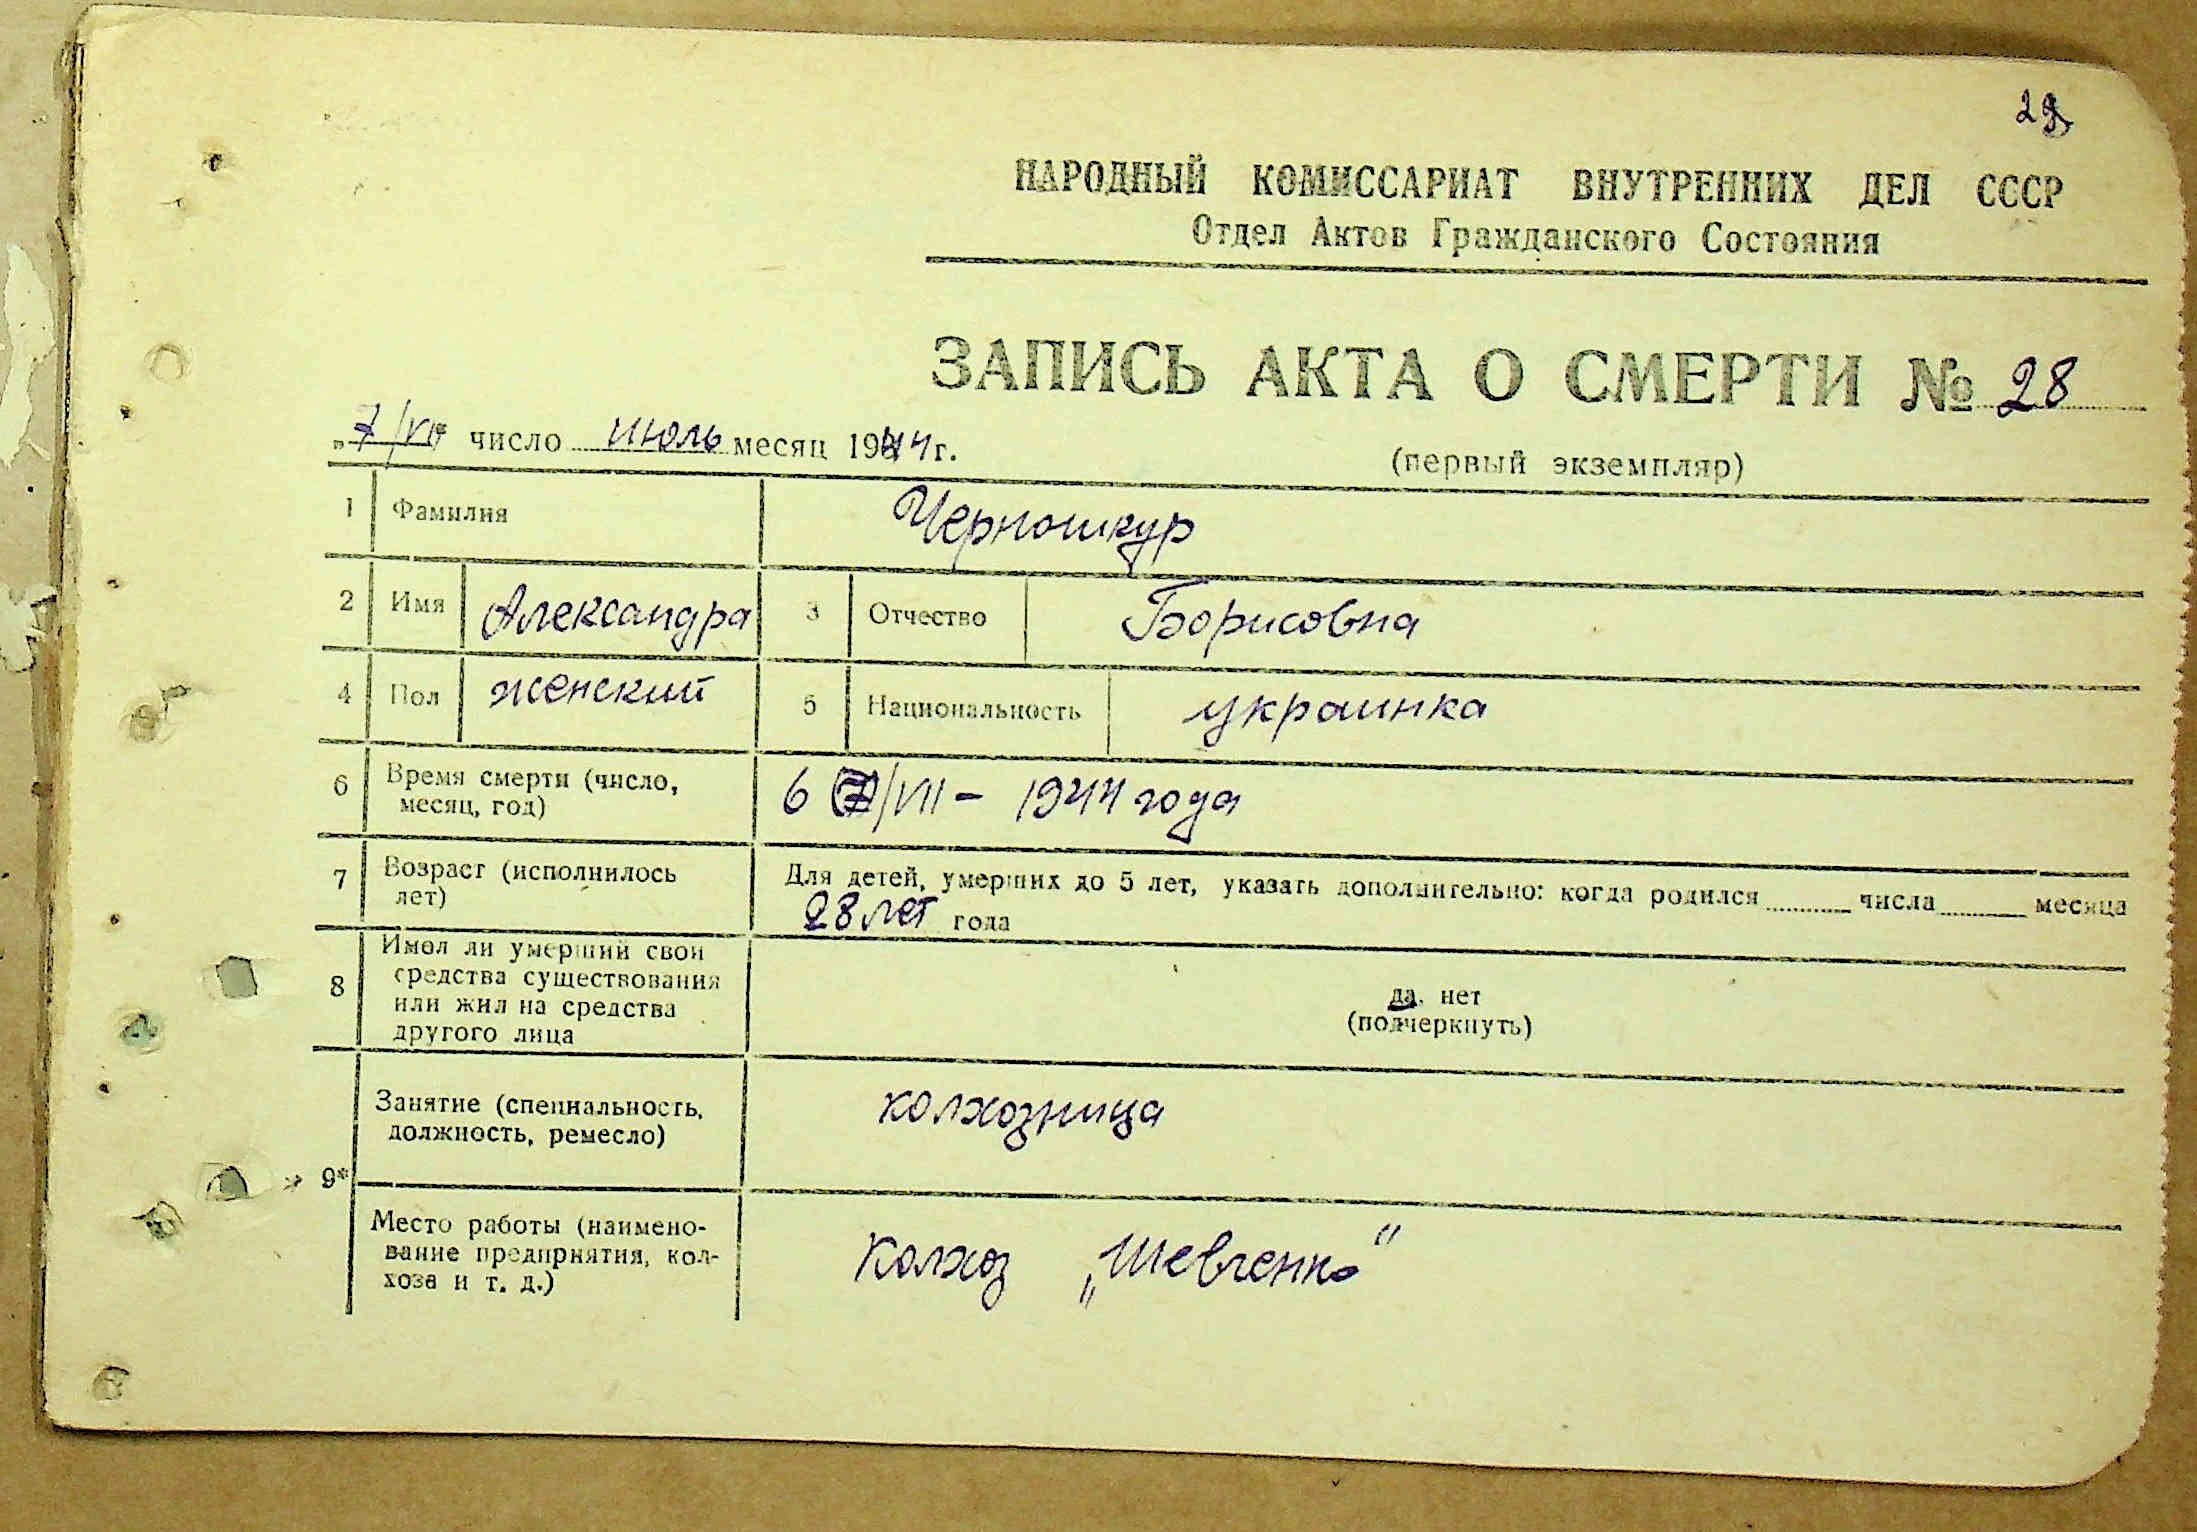 НАРОДНЫЙ КОМИССАРИАТ ВНУТРЕННИХ ДЕЛ СССР
Отдел Актов Гражданского Состояния
ЗАПИСЬ АКТА О СМЕРТИ № 28
„7/VII число июль месяц 1944 г.
(первый экземпляр)
1 Фамилия Черношкур
2 Имя Александра 3 Отчество Борисовна
4 Пол женский 5 Национальность украинка
6 Время смерти (число, месяц, год) 6 (7)/VII – 1944 года
7 Возраст (исполнилось лет) Для детей, умерших до 5 лет, указать дополнительно: когда родился числа месяца
28 лет года
8 Имел ли умерший свои средства существования или жил на средства другого лица
да, нет
(подчеркнуть)
9* Занятие (специальность, должность, ремесло) колхозница
Место работы (наименование предприятия, колхоза и т. д.) Колхоз „Шевченко"